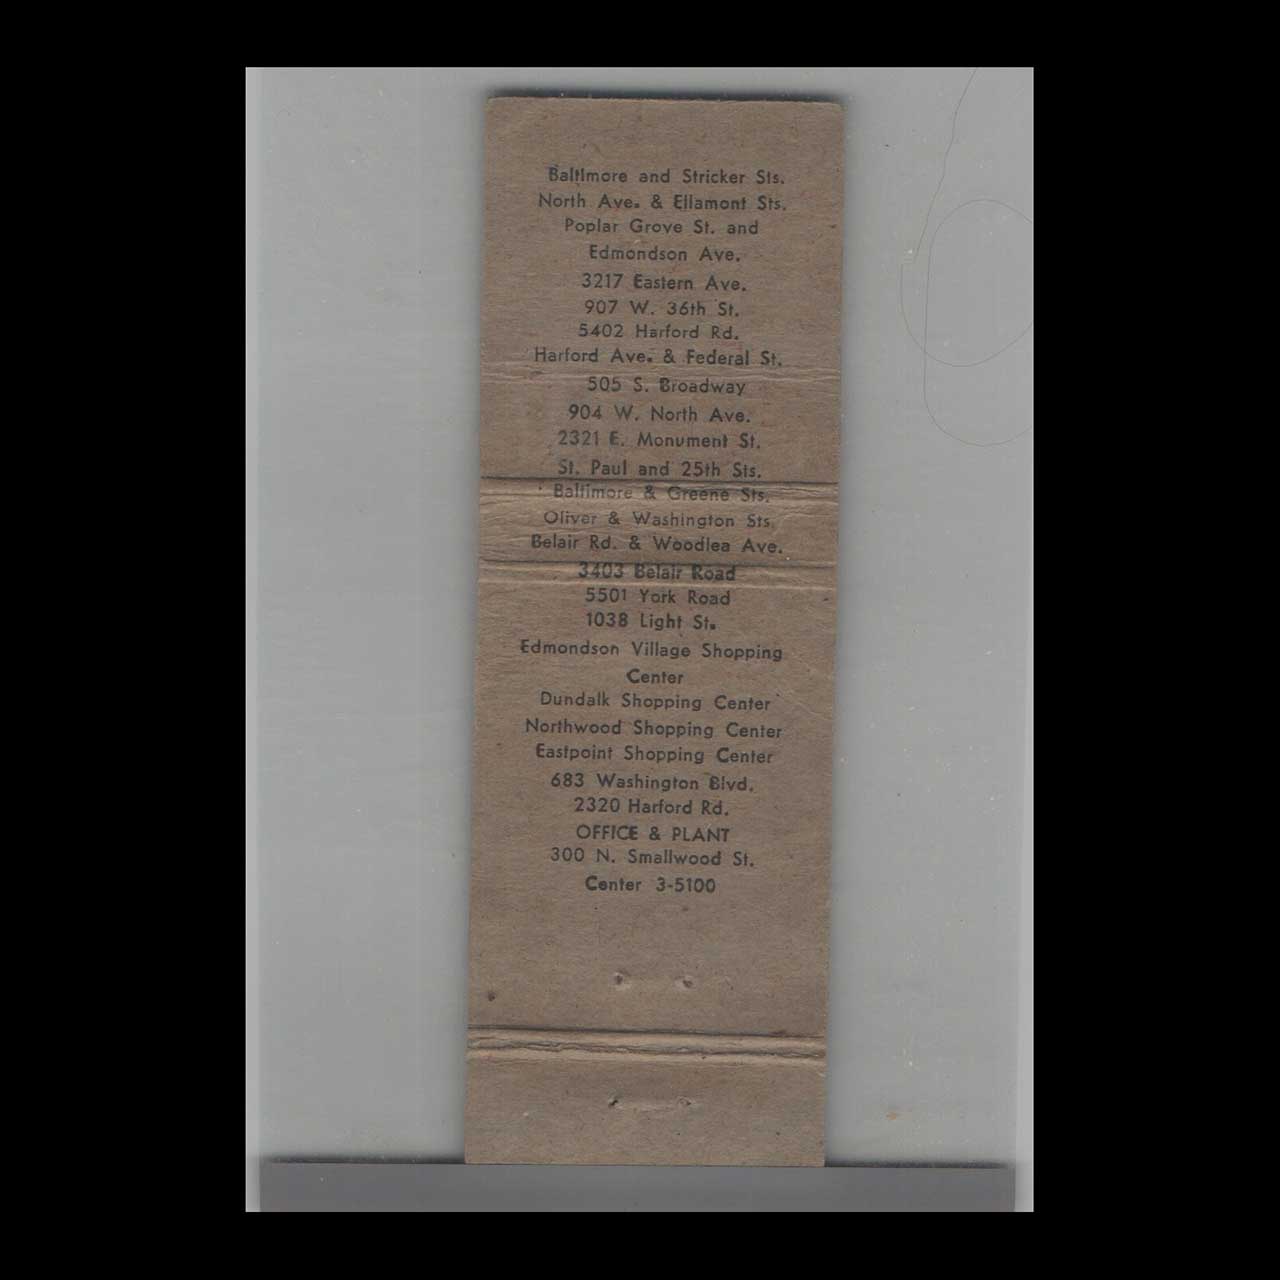 Baltimore and Stricker Sts.
North Ave. & Ellamont Sts.
Poplar Grove St. and
Edmondson Ave.
3217 Eastern Ave.
907 W. 36th St.
5402 Harford Rd.
Harford Ave. & Federal St.
505 S. Broadway
904 W. North Ave.
2321 E. Monument St.
St. Paul and 25th Sts.
Baltimore & Greene Sts.
Oliver & Washington Sts.
Belair Rd. & Woodlea Ave.
3403 Belair Road
5501 York Road
1038 Light St.
Edmondson Village Shopping
Center
Dundalk Shopping Center
Northwood Shopping Center
Eastpoint Shopping Center
683 Washington Blvd.
2320 Harford Rd.
OFFICE & PLANT
300 N. Smallwood St.
Center 3-5100